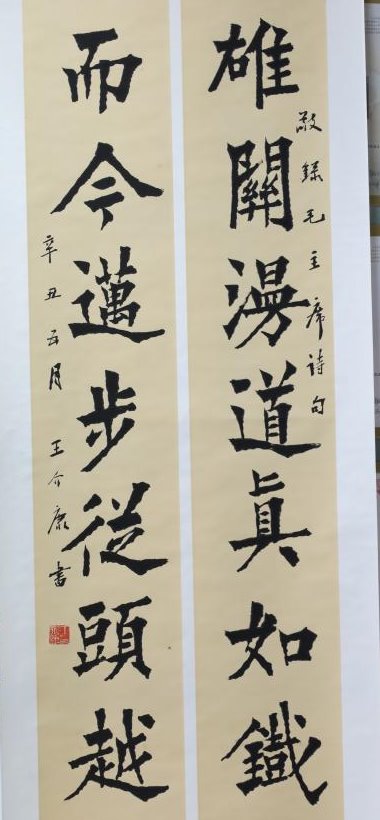 雄關漫道真如鐵
敬錄毛主席詩句
而今邁步從頭越
辛丑五月 王介康書